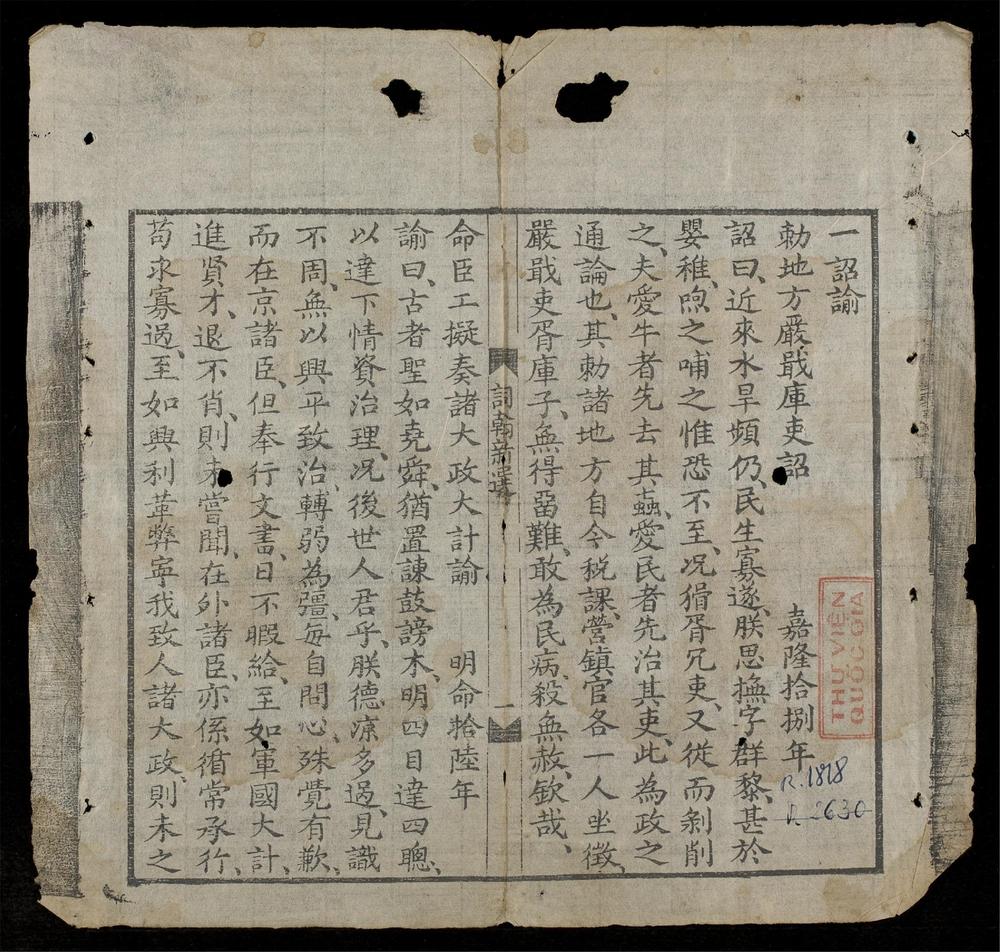 一詔諭
勅地方嚴戢庫吏詔 嘉隆拾捌年
詔曰、近來水旱頻仍、民生寡遂、朕思撫字群黎、甚於
嬰稚、喣之哺之惟恐不至、况猾胥冗吏、又從而剝削
之、夫愛牛者先去其蝱、愛民者先治其吏、此為政之
通論也、其勅諸地方自今稅課、營鎮官各一人坐徵、
嚴戢吏胥庫子、無得畱難、敢為民病、殺無赦、欽哉、
詞翰新選
一
命臣工擬奏諸大政大計諭 明命拾陸年
諭曰、古者聖如堯舜、猶置諫鼓謗木、明四目達四聰、
以達下情資治理、况後世人君乎、朕德凉多過、見識
不周、無以興平致治、轉弱為彊、每自問心、殊覺有歉、
而在京諸臣、但奉行文書、日不暇給、至如軍國大計、
進賢才、退不肖、則未嘗聞、在外諸臣、亦係循常承行、
苟求寡過、至如興利革弊寜我致人諸大政、則未之
THƯ VIỆN
QUỐC GIA
R.1818
R.2630